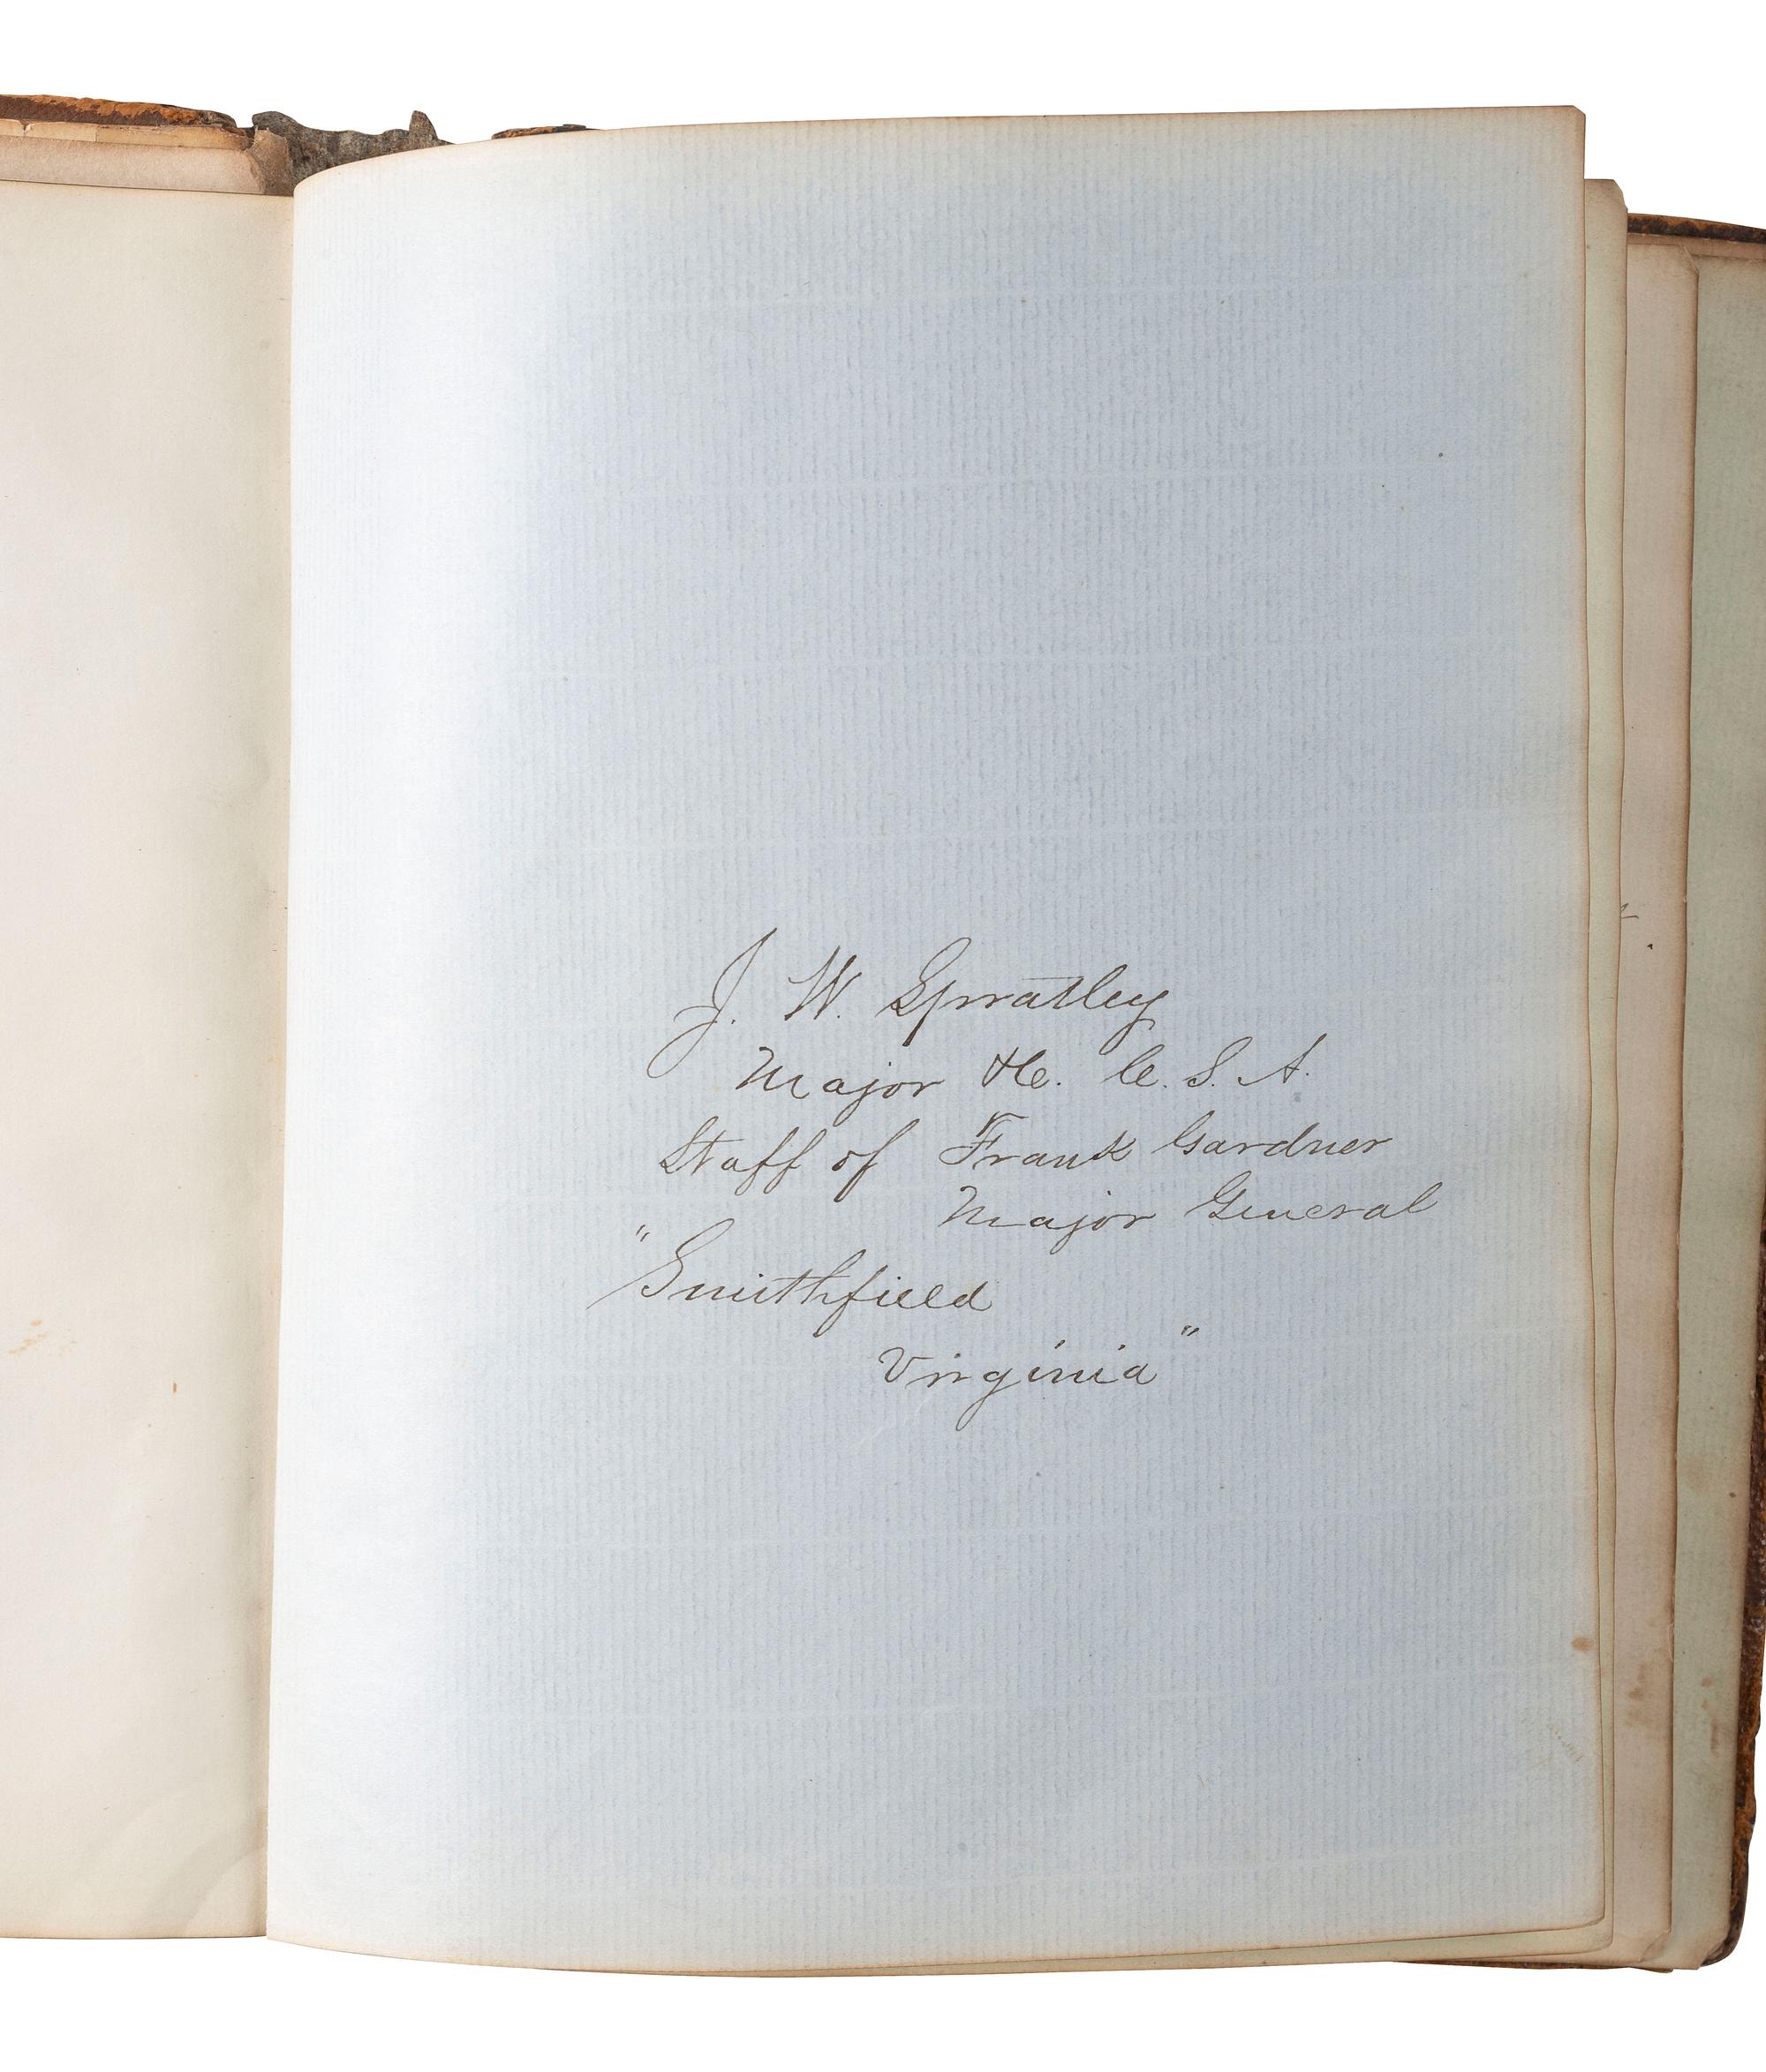 J. W. Spratley
Major &c. C. S. A.
Staff of Frank Gardner
Major General
"Smithfield
Virginia"